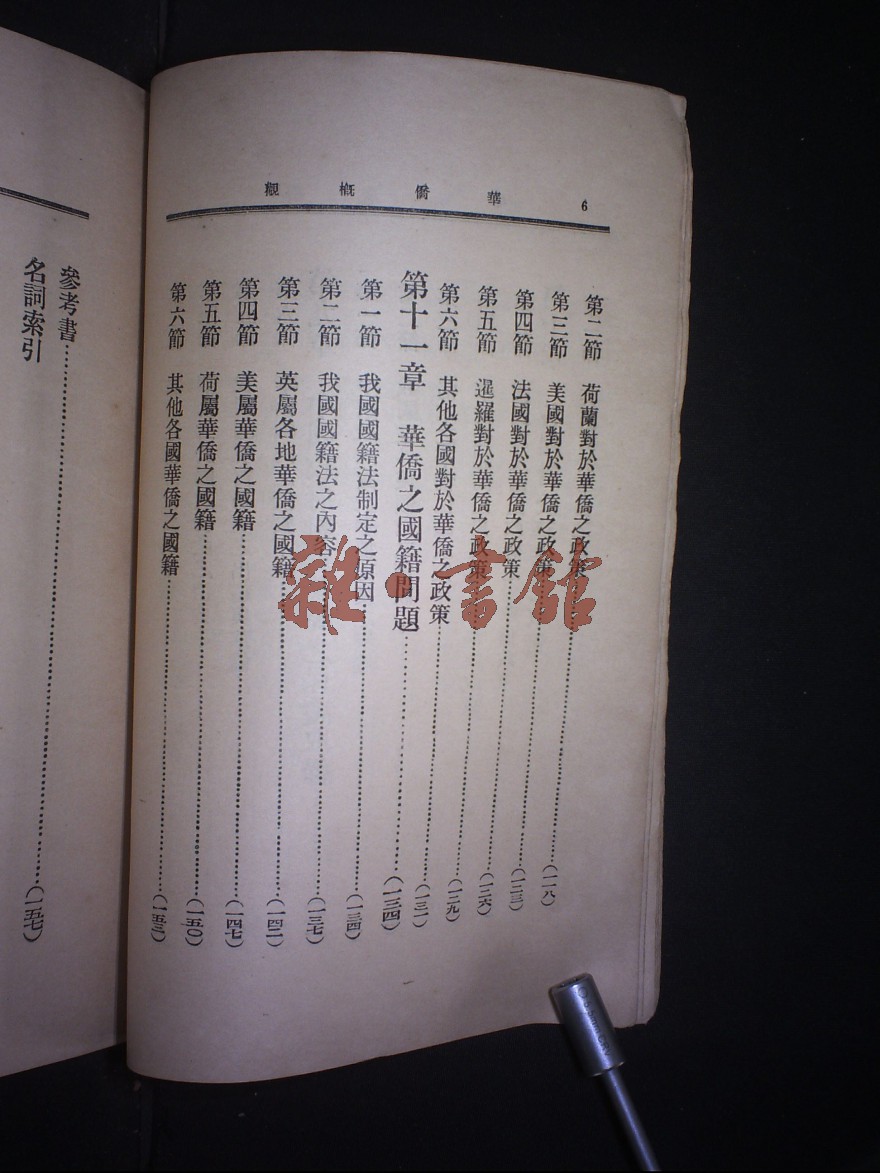 華僑概觀 6
第二節 荷蘭對於華僑之政策……(一一八)
第三節 美國對於華僑之政策……(一二三)
第四節 法國對於華僑之政策……(一二六)
第五節 暹羅對於華僑之政策……(一二九)
第六節 其他各國對於華僑之政策……(一三一)
第十一章 華僑之國籍問題……(一三四)
第一節 我國國籍法制定之原因……(一三四)
第二節 我國國籍法之內容……(一三七)
第三節 英屬各地華僑之國籍……(一四二)
第四節 美屬華僑之國籍……(一四七)
第五節 荷屬華僑之國籍……(一五〇)
第六節 其他各國華僑之國籍……(一五三)
參考書……(一五七)
名詞索引
雜·書館